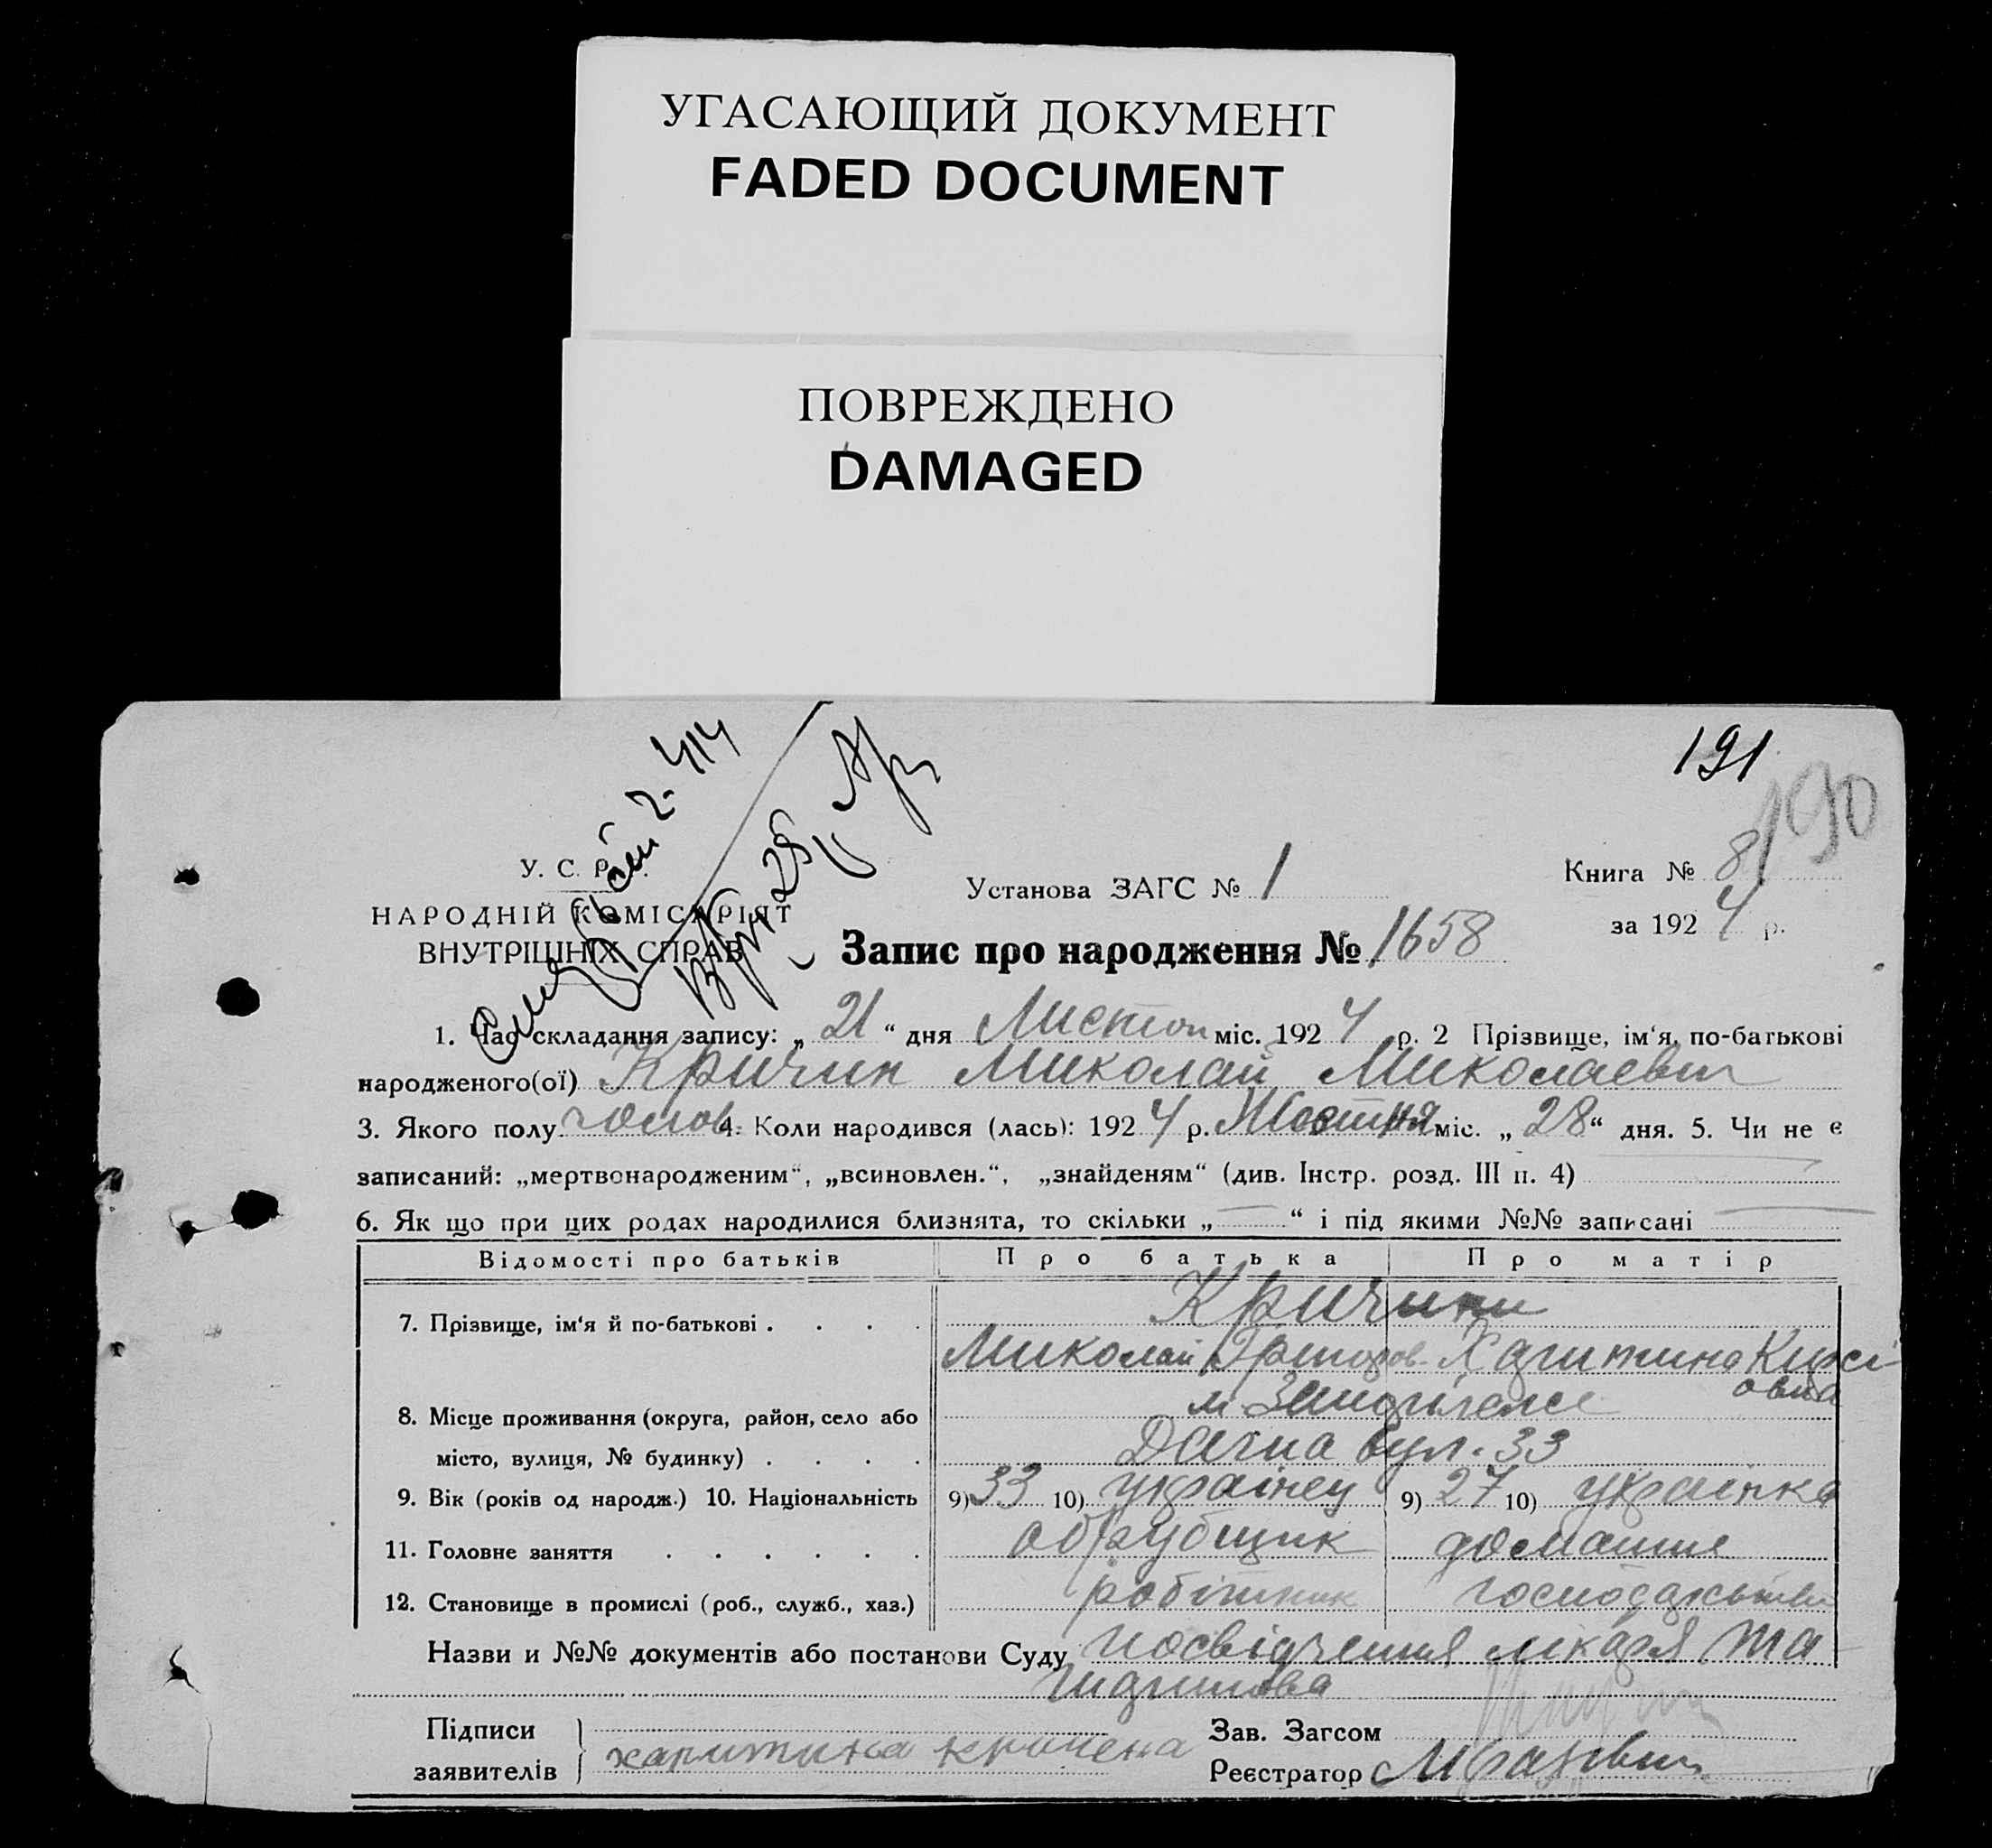 УГАСАЮЩИЙ ДОКУМЕНТ
FADED DOCUMENT
ПОВРЕЖДЕНО
DAMAGED
191
190
У. С. Р. Р.
НАРОДНІЙ КОМІСАРІЯТ
ВНУТРІШНІХ СПРАВ
Установа ЗАГС № 1
Книга № 8
за 1924 р.
Запис про народження № 1658
1. Час складання запису: „ 21 “ дня Листоп міс. 1924 р. 2 Прізвище, ім‘я, по-батькові
народженого(ої) Кричун Миколай Миколаевич
3. Якого полу чолов. 4. Коли народився (лась): 1924 р. Жовтня міс. „ 28 “ дня. 5. Чи не є
записаний: „мертвонародженим“, „всиновлен.“, „знайденям“ (див. Інстр. розд. III п. 4)
6. Як що при цих родах народилися близнята, то скільки „ “ і під якими №№ записані
Відомості про батьків Про батька Про матір
7. Прізвище, ім‘я й по-батькові
Миколай Григоров. Харитина
8. Місце проживання (округа, район, село або
м
місто, вулиця, № будинку) Дачна вул. 33
9. Вік (років од народж.) 10. Національність 9) 33 10) українец 9) 27 10) українка
11. Головне заняття обрубщик домашне
12. Становище в промислі (роб., служб., хаз.) робітник господарство
Назви и №№ документів або постанови Суду посвідчення лікаря
Підписи
заявителів харитина
Зав. Загсом
Реєстратор